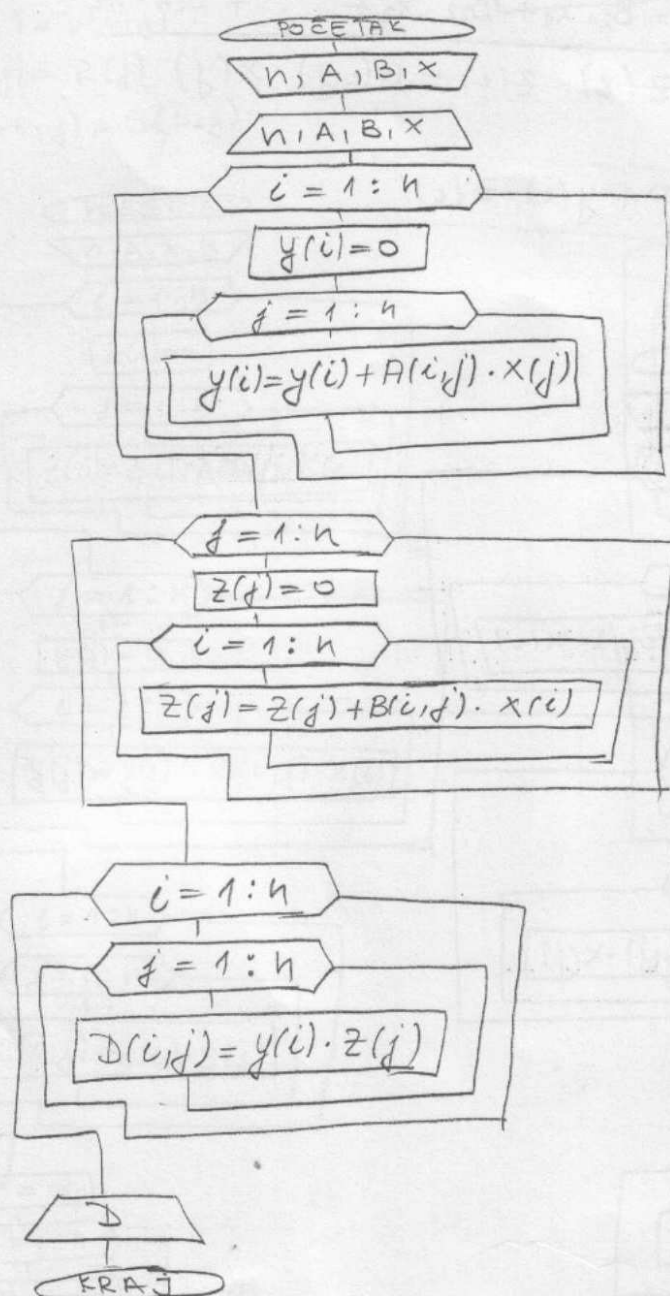 POČETAK
n, A, B, X
n, A, B, X
i = 1 : n
y(i) = 0
j = 1 : n
y(i) = y(i) + A(i,j) · X(j)
j = 1 : n
Z(j) = 0
i = 1 : n
Z(j) = Z(j) + B(i,j) · X(i)
i = 1 : n
j = 1 : n
D(i,j) = y(i) · Z(j)
D
KRAJ